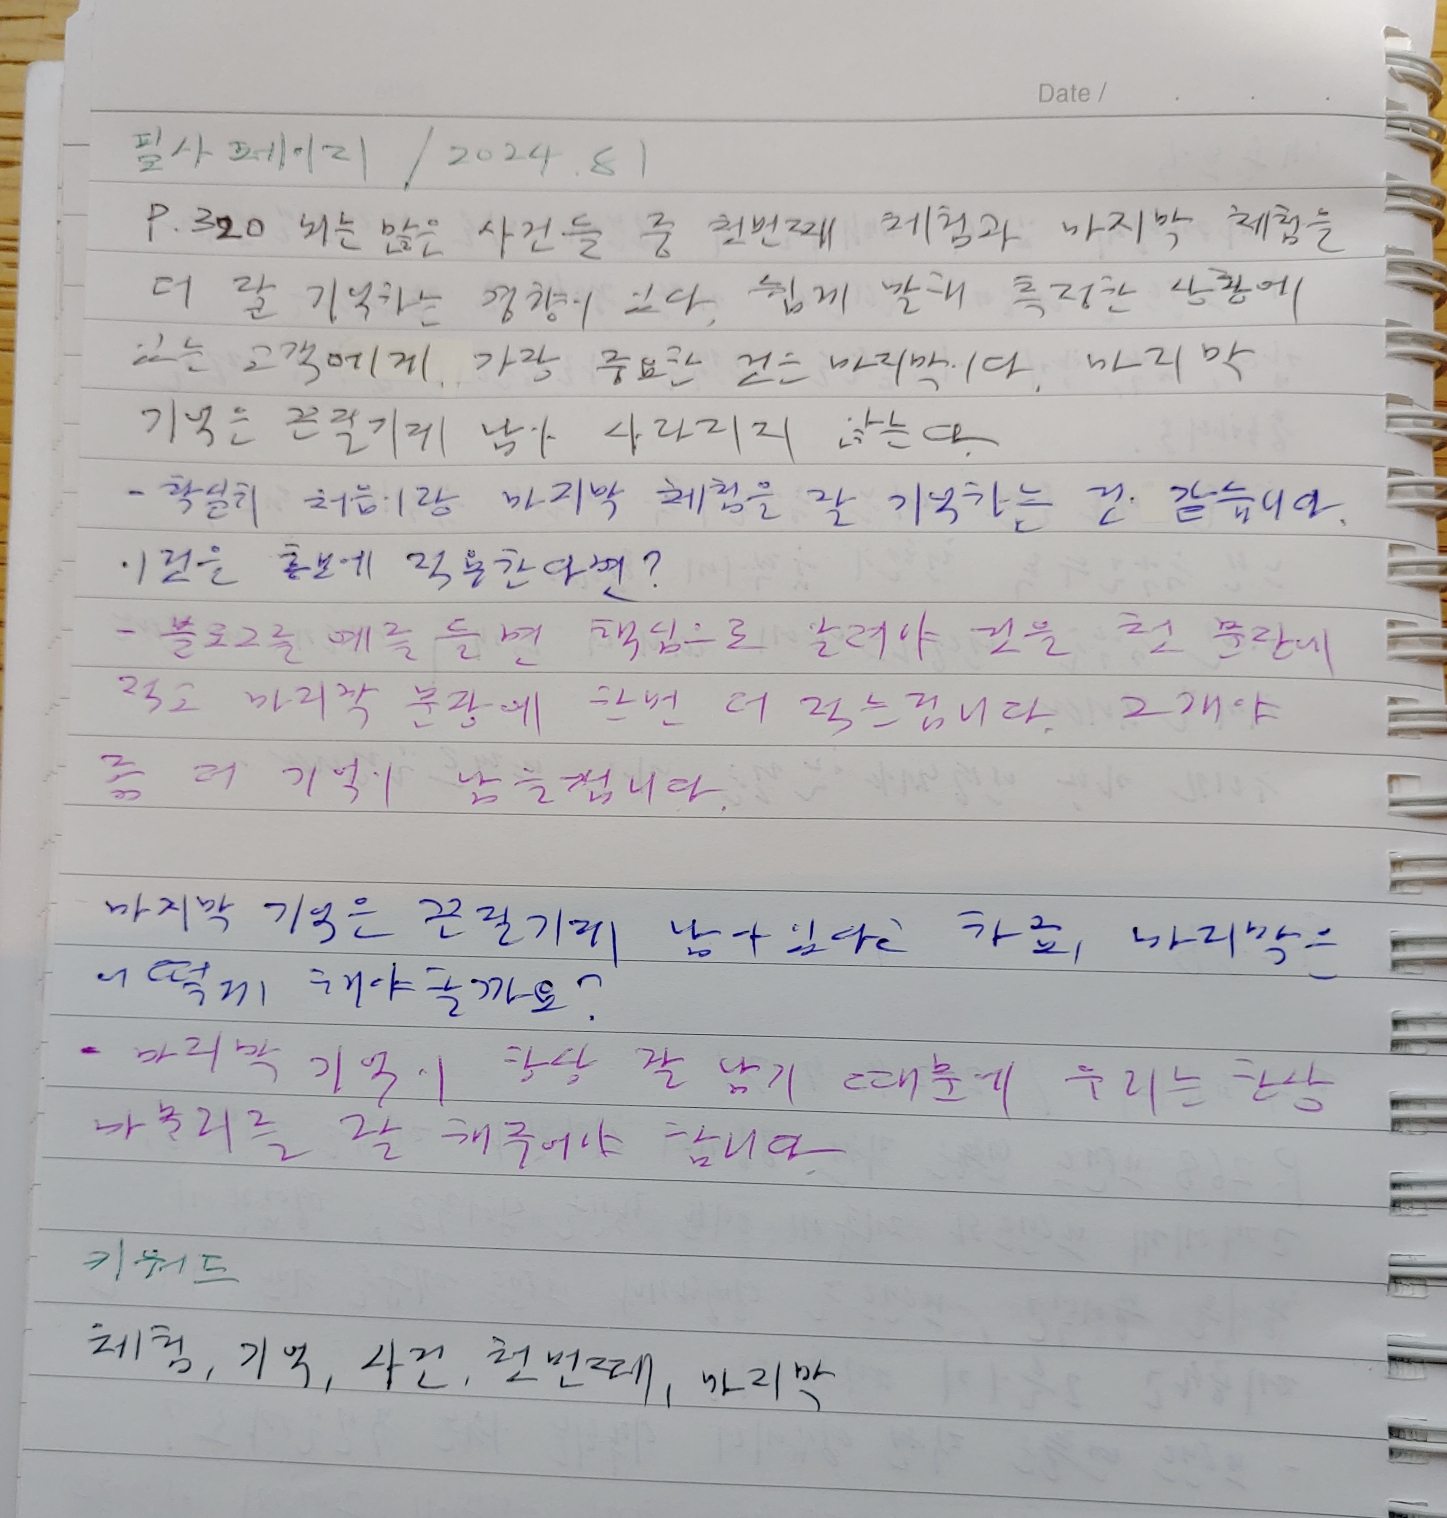 Date /     .     .     .
필사 페이지 / 2024. 8 1
P. 320 뇌는 많은 사건들 중 첫번째 체험과 마지막 체험을
더 잘 기억하는 경향이 있다. 쉽게 말해 특정한 상황에
있는 고객에게 가장 중요한 것은 마지막이다. 마지막
기억은 끈질기게 남아 사라지지 않는다.
- 확실히 처음이랑 마지막 체험을 잘 기억하는 것 같습니다.
이것을 홍보에 적용한다면?
- 블로그를 예를 들면 핵심으로 알려야 것을 첫 문장에
적고 마지막 문장에 한번 더 적는겁니다. 그래야
좀 더 기억이 남는겁니다.
마지막 기억은 끈질기게 남아 있다고 하죠, 마지막은
어떻게 해야 할까요?
- 마지막 기억이 항상 잘 남기 때문에 우리는 항상
마무리를 잘 해주어야 합니다
키워드
체험, 기억, 사건, 첫번째, 마지막